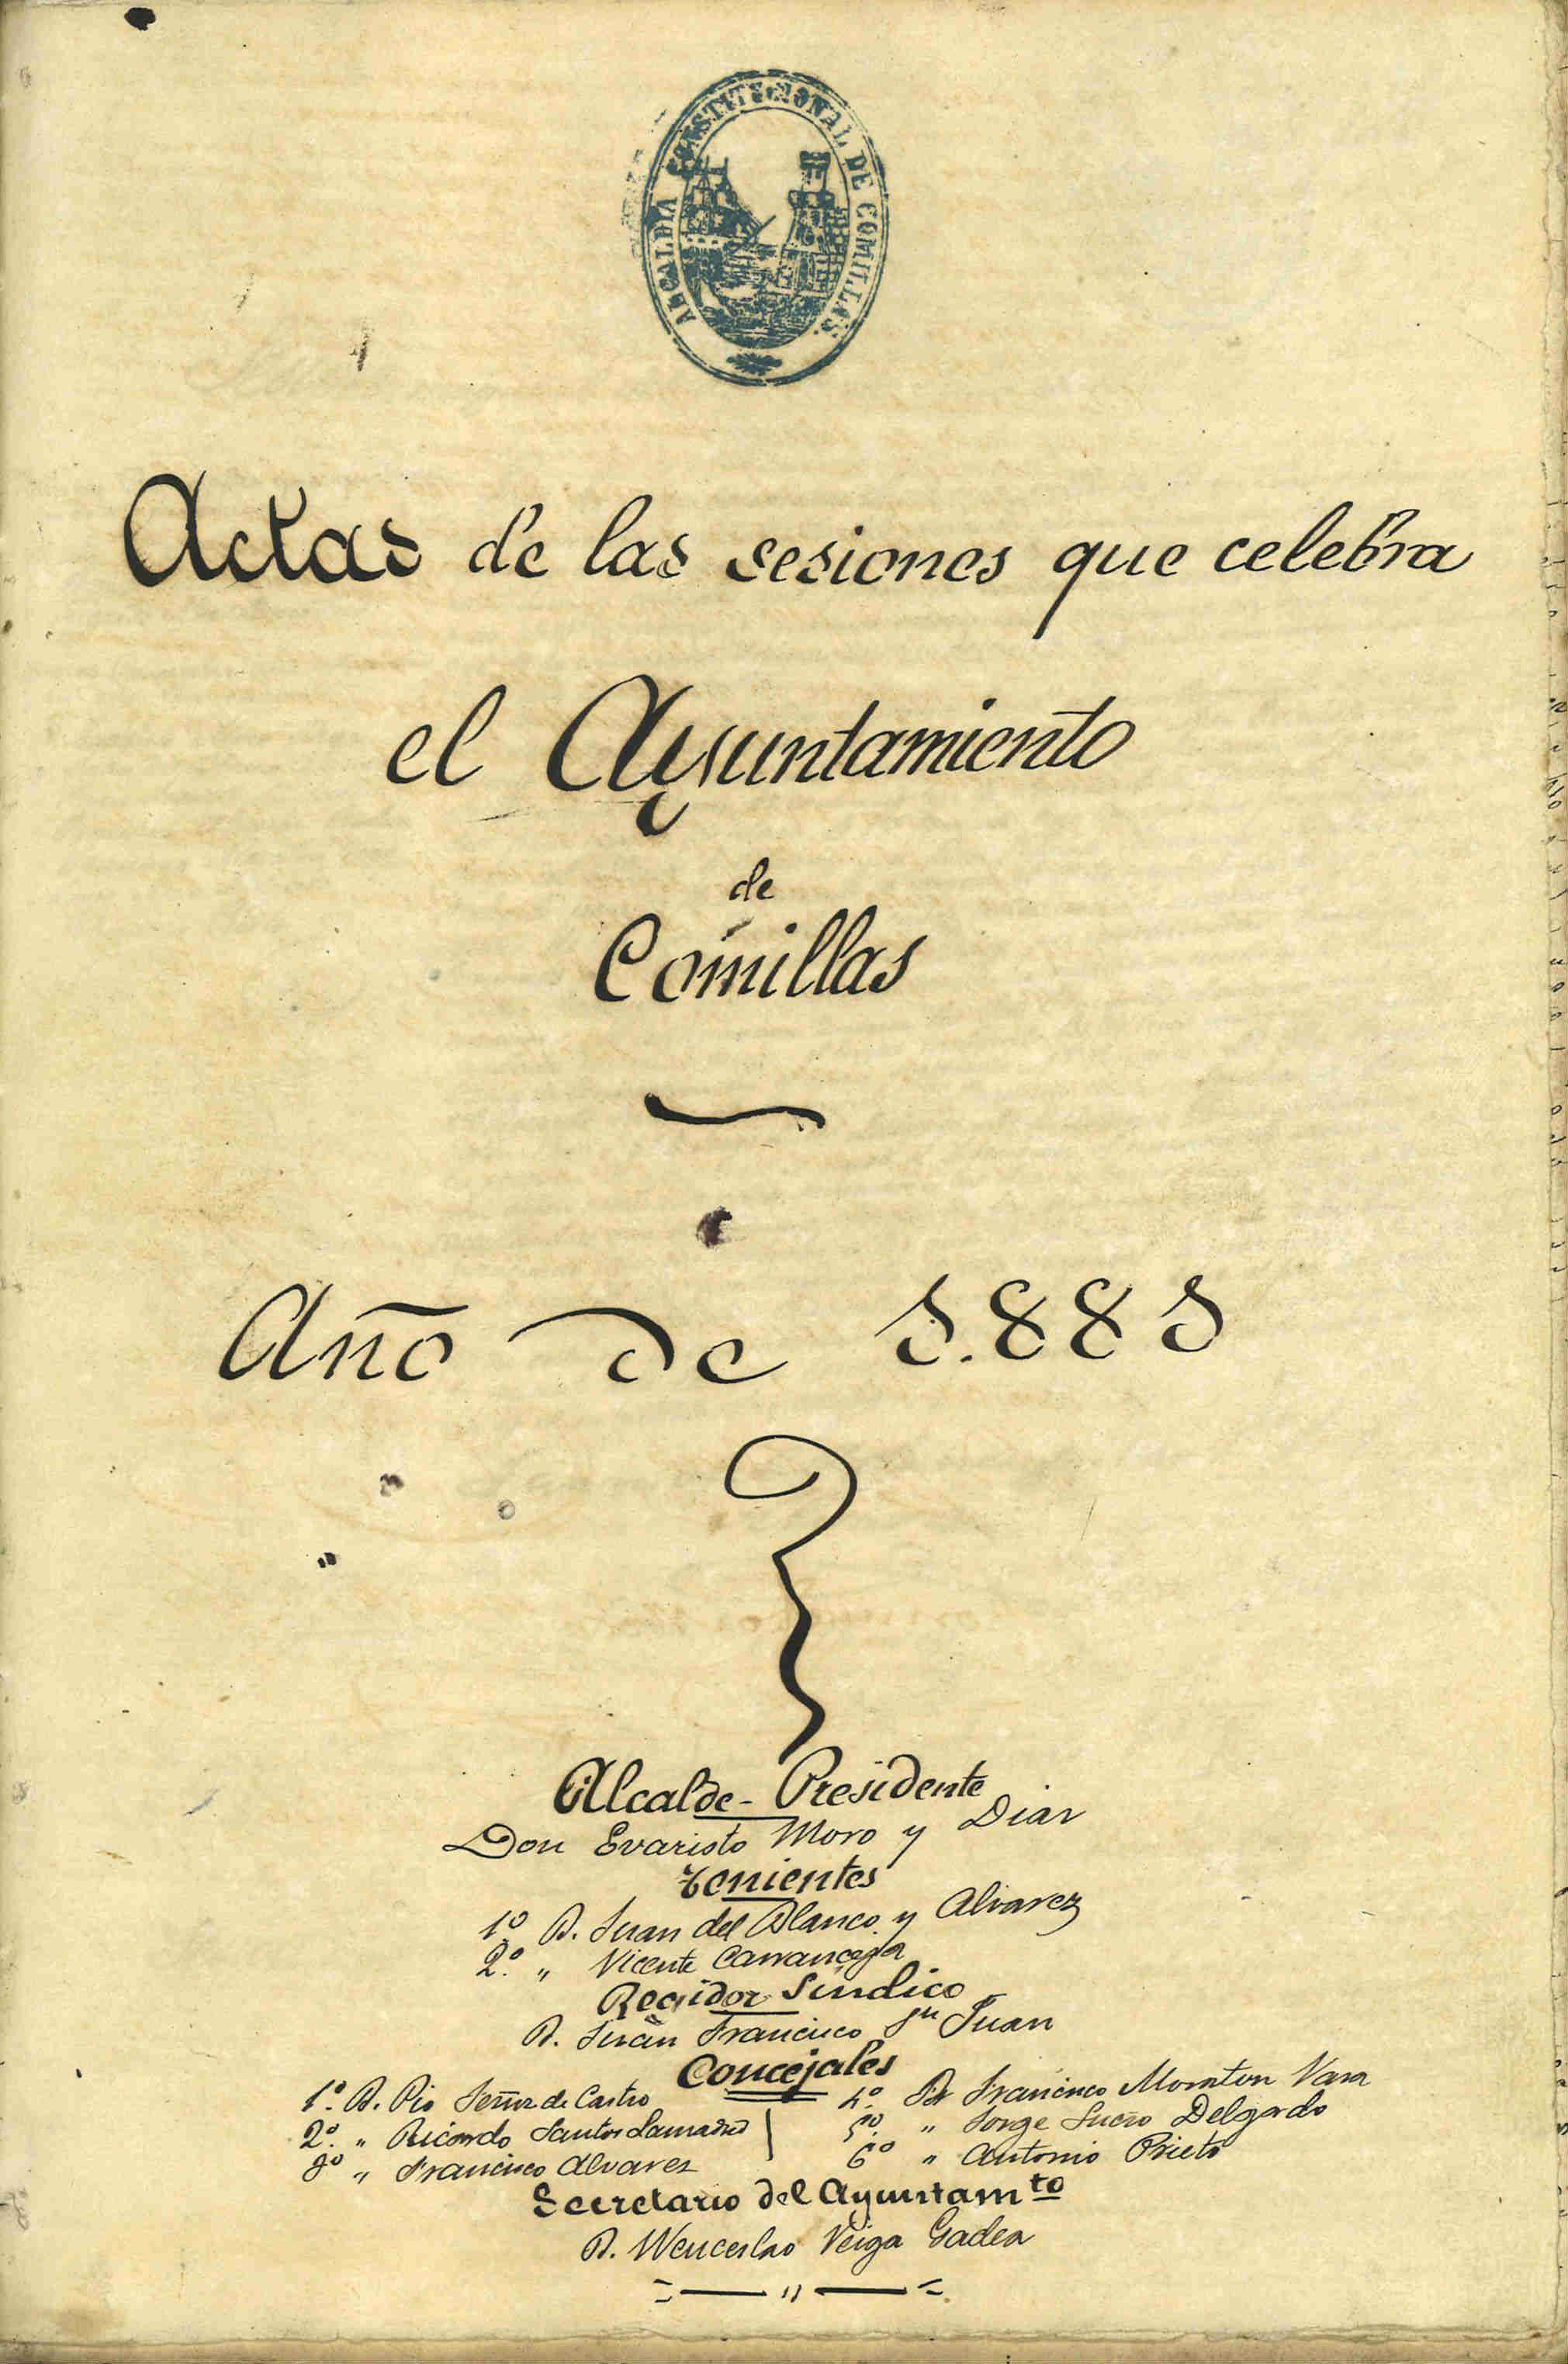 ALCALDIA CONSTITUCIONAL DE COMILLAS
Actas de las sesiones que celebra
el Ayuntamiento
de
Comillas
Año de 1.881
Alcalde-Presidente
Don Evaristo Moro y Diaz
Tenientes
1º D. Juan del Blanco y Alvarez
2.º " Vicente Carranceja
Regidor Sindico
D. Juan Francisco Sn Juan
Concejales
1.º D. Pio de Castro
2.º " Ricardo Santos Lamadrid
3º " Francisco Alvarez
4.º D. Francisco Vara
5.º " Jorge Delgado
6º " Antonio Prieto
Secretario del Ayuntamto
D. Wenceslao Veiga Gadea